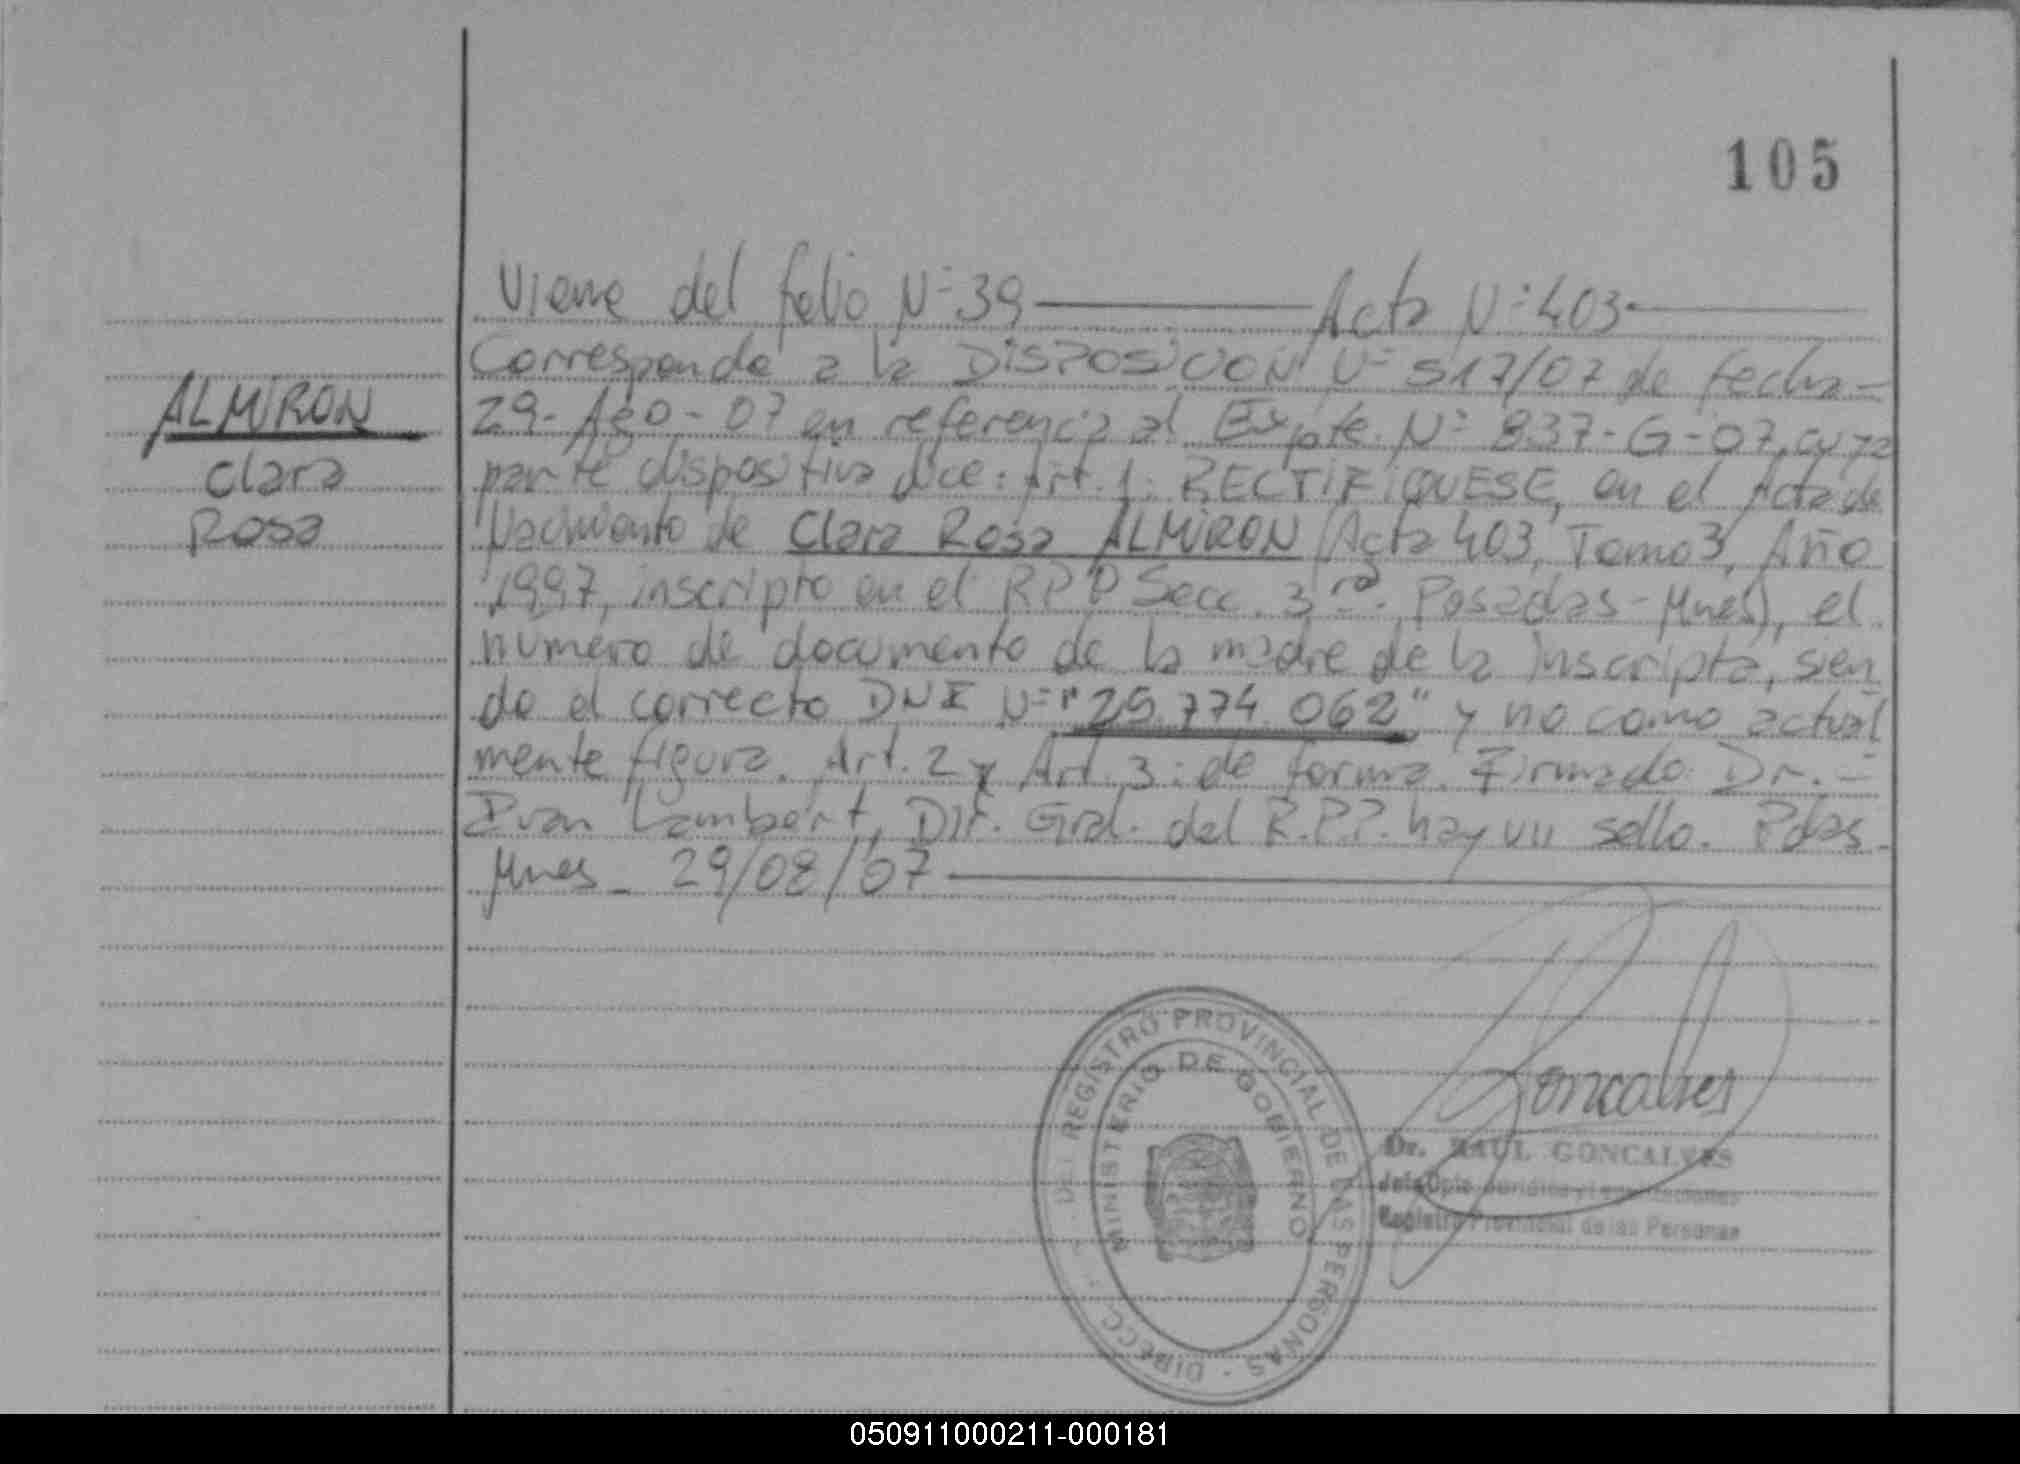 105
Viene del folio Nº 39 ——— Acta Nº 403 ———
Corresponde a la DISPOSICION Nº 517/07 de fecha -
29-Ago-07 en referencia al Expte. Nº 837-G-07, cuya
ALMIRON
Clara
Rosa
parte dispositiva dice: Art. 1: RECTIFIQUESE, en el Acta de
Nacimiento de Clara Rosa ALMIRON (Acta 403, Tomo 3, Año
1997, inscripto en el RPP Secc. 3ra. Posadas-Mnes), el
numero de documento de la madre de la inscripta, sien
do el correcto DNI Nº "25.774.062" y no como actual
mente figura. Art. 2 y Art. 3: de forma. Firmado: Dr. -
Ivan Lambert, Dir. Gral. del R.P.P. hay un sello. Pdas-
Mnes - 29/08/07 ———
DIRECC. DEL REGISTRO PROVINCIAL DE LAS PERSONAS
MINISTERIO DE GOBIERNO
Goncalves
Dr. RAUL GONCALVES
Jefe Dpto. Juridico y
Registro Provincial de las Personas
050911000211-000181